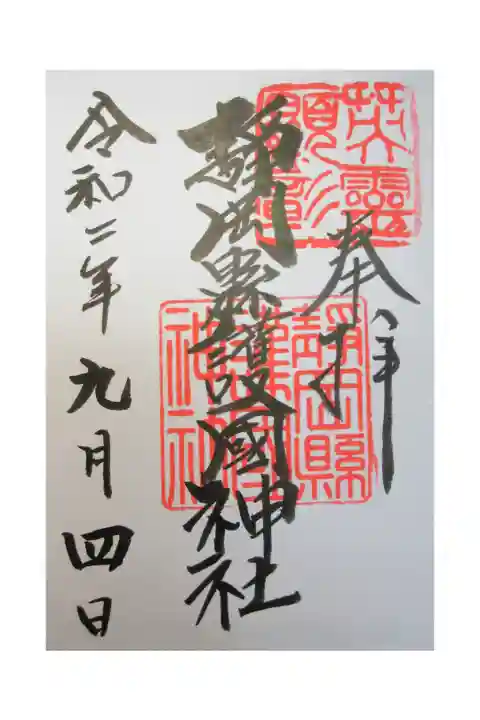 奉拝
英霊顕彰
靜岡縣護國神社
靜岡縣護國神社
令和二年九月四日